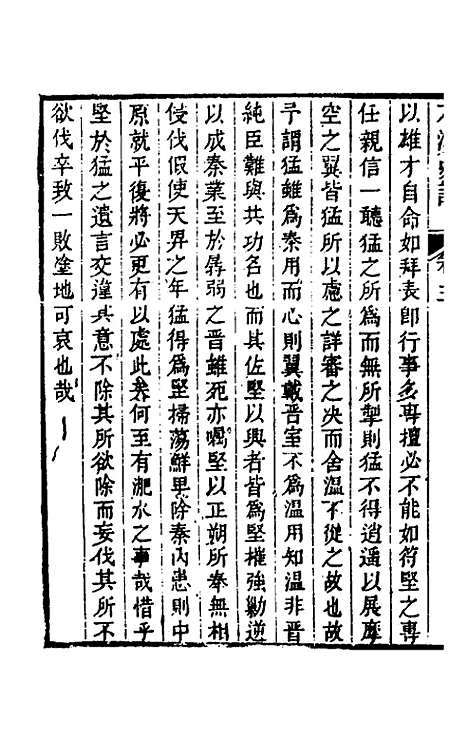 卷三
以雄才自命如拜表卽行事多專擅必不能如符堅之專
任親信一聽猛之所爲而無所掣則猛不得逍遥以展摩
空之翼皆猛所以慮之詳審之决而舍溫不從之故也故
予謂猛雖爲秦用而心則翼戴晉室不爲溫用知溫非晉
純臣難與共功名也而其佐堅以興者皆爲堅摧強勦逆
以成秦業至於孱弱之晉雖死亦囑堅以正朔所奉無相
侵伐假使天畀之年猛得爲堅掃蕩鮮卑除秦內患則中
原就平復將必更有以處此矣何至有淝水之事哉惜乎
堅於猛之遺言交違其意不除其所欲除而妄伐其所不
欲伐卒致一敗塗地可哀也哉